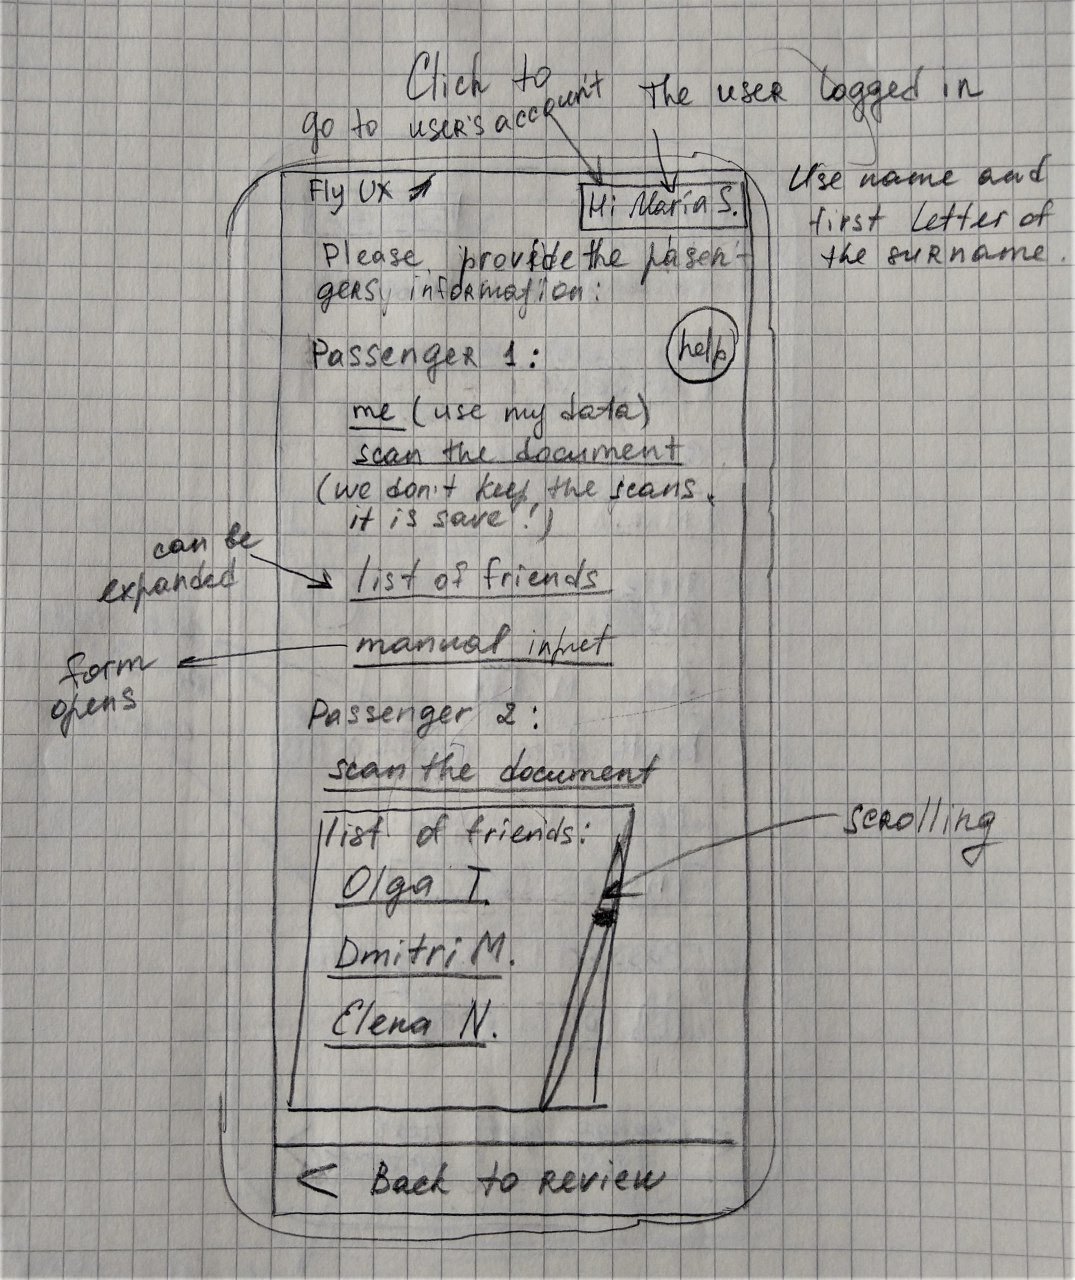 Click to
go to user's account
The user logged in
Use name and
first letter of
the surname.
Fly UX
Hi Maria S.
Please provide the pasen-
gers information:
Passenger 1:
help
me (use my data)
scan the document
(we don't keep the scans.
it is save!)
can be
expanded
list of friends
manual input
form
opens
Passenger 2:
scan the document
list of friends:
scrolling
Olga T.
Dmitri M.
Elena N.
< Back to review